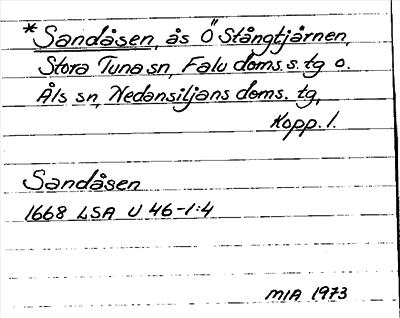 *Sandåsen, ås Ö Stångtjärnen,
Stora Tuna sn, Falu doms.s. tg o.
Åls sn, Nedansiljans doms. tg,
Kopp. l.
Sandåsen
1668 LSA U 46-1:4
MIA 1973